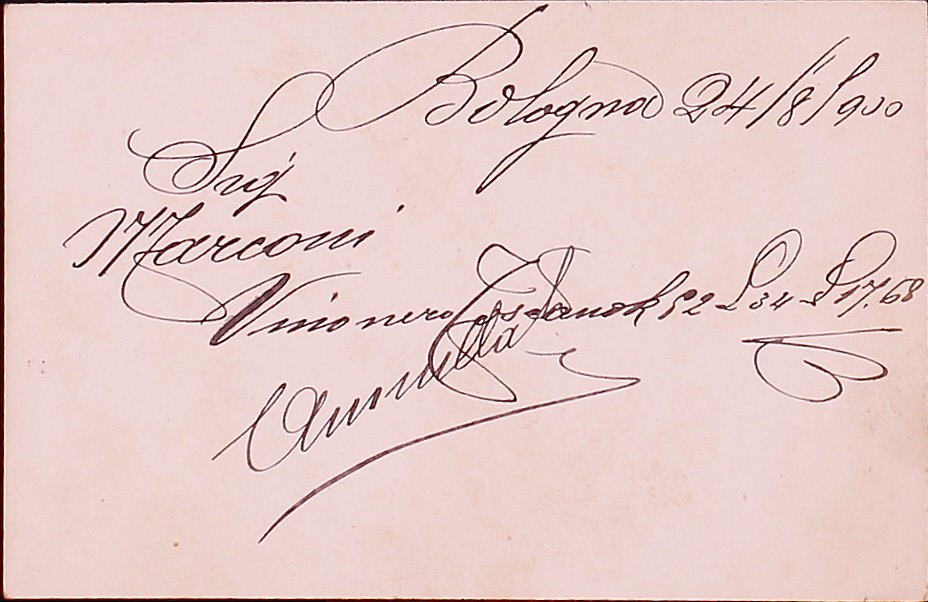 Bologna 24/8/900
Sigr
Marconi
Vino nero Toscano K 52 L 34 L 17.68
Annulla